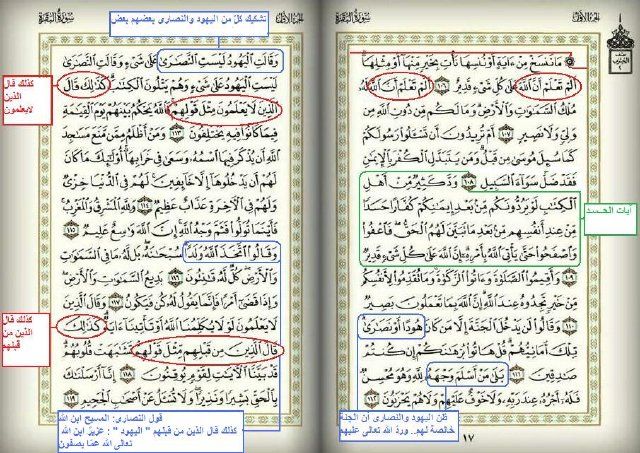 الجزء الأول
سورة البقرة
۞ مَا نَنسَخْ مِنْ ءَايَةٍ أَوْ نُنسِهَا نَأْتِ بِخَيْرٍ مِّنْهَا أَوْ مِثْلِهَآ
أَلَمْ تَعْلَمْ أَنَّ ٱللَّهَ عَلَىٰ كُلِّ شَىْءٍ قَدِيرٌ ١٠٦ أَلَمْ تَعْلَمْ أَنَّ ٱللَّهَ لَهُۥ
مُلْكُ ٱلسَّمَـٰوَٰتِ وَٱلْأَرْضِ وَمَا لَكُم مِّن دُونِ ٱللَّهِ مِن
وَلِىٍّ وَلَا نَصِيرٍ ١٠٧ أَمْ تُرِيدُونَ أَن تَسْـَٔلُوا۟ رَسُولَكُمْ
كَمَا سُئِلَ مُوسَىٰ مِن قَبْلُ وَمَن يَتَبَدَّلِ ٱلْكُفْرَ بِٱلْإِيمَـٰنِ
فَقَدْ ضَلَّ سَوَآءَ ٱلسَّبِيلِ ١٠٨ وَدَّ كَثِيرٌ مِّنْ أَهْلِ
ٱلْكِتَـٰبِ لَوْ يَرُدُّونَكُم مِّنۢ بَعْدِ إِيمَـٰنِكُمْ كُفَّارًا حَسَدًا
مِّنْ عِندِ أَنفُسِهِم مِّنۢ بَعْدِ مَا تَبَيَّنَ لَهُمُ ٱلْحَقُّ فَٱعْفُوا۟
وَٱصْفَحُوا۟ حَتَّىٰ يَأْتِىَ ٱللَّهُ بِأَمْرِهِۦٓ إِنَّ ٱللَّهَ عَلَىٰ كُلِّ شَىْءٍ قَدِيرٌ
١٠٩ وَأَقِيمُوا۟ ٱلصَّلَوٰةَ وَءَاتُوا۟ ٱلزَّكَوٰةَ وَمَا تُقَدِّمُوا۟ لِأَنفُسِكُم
مِّنْ خَيْرٍ تَجِدُوهُ عِندَ ٱللَّهِ إِنَّ ٱللَّهَ بِمَا تَعْمَلُونَ بَصِيرٌ
١١٠ وَقَالُوا۟ لَن يَدْخُلَ ٱلْجَنَّةَ إِلَّا مَن كَانَ هُودًا أَوْ نَصَـٰرَىٰ
تِلْكَ أَمَانِيُّهُمْ قُلْ هَاتُوا۟ بُرْهَـٰنَكُمْ إِن كُنتُمْ
صَـٰدِقِينَ ١١١ بَلَىٰ مَنْ أَسْلَمَ وَجْهَهُۥ لِلَّهِ وَهُوَ مُحْسِنٌ
فَلَهُۥٓ أَجْرُهُۥ عِندَ رَبِّهِۦ وَلَا خَوْفٌ عَلَيْهِمْ وَلَا هُمْ يَحْزَنُونَ ١١٢
١٧
آيات الحسد
ظن اليهود والنصارى أن الجنة
خالصة لهم.. ورد الله تعالى عليهم
الجزء الأول
سورة البقرة
تشكيك كل من اليهود والنصارى بعضهم بعض
وَقَالَتِ ٱلْيَهُودُ لَيْسَتِ ٱلنَّصَـٰرَىٰ عَلَىٰ شَىْءٍ وَقَالَتِ ٱلنَّصَـٰرَىٰ
لَيْسَتِ ٱلْيَهُودُ عَلَىٰ شَىْءٍ وَهُمْ يَتْلُونَ ٱلْكِتَـٰبَ كَذَٰلِكَ قَالَ
ٱلَّذِينَ لَا يَعْلَمُونَ مِثْلَ قَوْلِهِمْ فَٱللَّهُ يَحْكُمُ بَيْنَهُمْ يَوْمَ ٱلْقِيَـٰمَةِ
فِيمَا كَانُوا۟ فِيهِ يَخْتَلِفُونَ ١١٣ وَمَنْ أَظْلَمُ مِمَّن مَّنَعَ مَسَـٰجِدَ
ٱللَّهِ أَن يُذْكَرَ فِيهَا ٱسْمُهُۥ وَسَعَىٰ فِى خَرَابِهَآ أُو۟لَـٰٓئِكَ مَا كَانَ
لَهُمْ أَن يَدْخُلُوهَآ إِلَّا خَآئِفِينَ لَهُمْ فِى ٱلدُّنْيَا خِزْىٌ
وَلَهُمْ فِى ٱلْـَٔاخِرَةِ عَذَابٌ عَظِيمٌ ١١٤ وَلِلَّهِ ٱلْمَشْرِقُ وَٱلْمَغْرِبُ
فَأَيْنَمَا تُوَلُّوا۟ فَثَمَّ وَجْهُ ٱللَّهِ إِنَّ ٱللَّهَ وَٰسِعٌ عَلِيمٌ ١١٥
وَقَالُوا۟ ٱتَّخَذَ ٱللَّهُ وَلَدًا سُبْحَـٰنَهُۥ بَل لَّهُۥ مَا فِى ٱلسَّمَـٰوَٰتِ
وَٱلْأَرْضِ كُلٌّ لَّهُۥ قَـٰنِتُونَ ١١٦ بَدِيعُ ٱلسَّمَـٰوَٰتِ وَٱلْأَرْضِ
وَإِذَا قَضَىٰٓ أَمْرًا فَإِنَّمَا يَقُولُ لَهُۥ كُن فَيَكُونُ ١١٧ وَقَالَ ٱلَّذِينَ
لَا يَعْلَمُونَ لَوْلَا يُكَلِّمُنَا ٱللَّهُ أَوْ تَأْتِينَآ ءَايَةٌ كَذَٰلِكَ
قَالَ ٱلَّذِينَ مِن قَبْلِهِم مِّثْلَ قَوْلِهِمْ تَشَـٰبَهَتْ قُلُوبُهُمْ
قَدْ بَيَّنَّا ٱلْـَٔايَـٰتِ لِقَوْمٍ يُوقِنُونَ ١١٨ إِنَّآ أَرْسَلْنَـٰكَ
بِٱلْحَقِّ بَشِيرًا وَنَذِيرًا وَلَا تُسْـَٔلُ عَنْ أَصْحَـٰبِ ٱلْجَحِيمِ ١١٩
كذلك قال
الذين
لايعلمون
كذلك قال
الذين من
قبلهم
قول النصارى: المسيح ابن الله
كذلك قال الذين من قبلهم " اليهود " : عزير ابن الله
تعالى الله عما يصفون